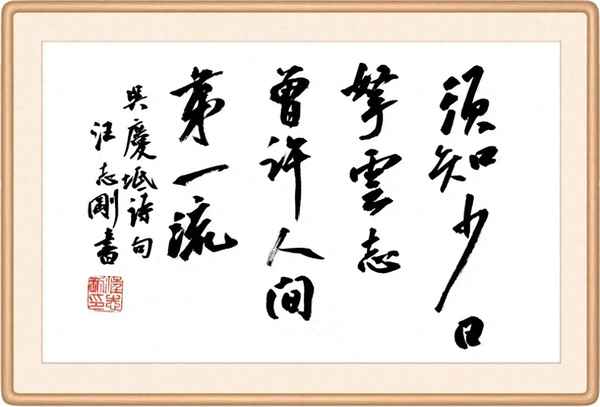 須知少日
拏雲志
曾許人间
第一流
吳慶坻詩句
汪志剛書
汪志剛印